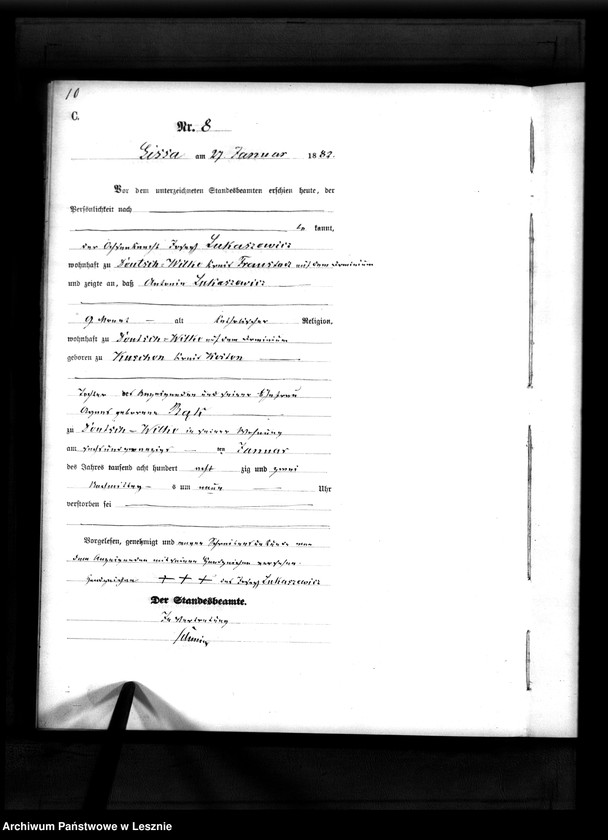 10
C.
Nr. 8
Lissa am 27 Januar 1882.
Vor dem unterzeichneten Standesbeamten erschien heute, der
Persönlichkeit nach
be kannt,
der Ochsenknecht Josef Lukaszewicz
wohnhaft zu Deutsch-Wilke Kreis Fraustadt auf dem Dominium
und zeigte an, daß Antonie Lukaszewicz
9 Monat alt katholischer Religion,
wohnhaft zu Deutsch-Wilke auf dem Dominium
geboren zu Kuschen Kreis Kosten
Tochter des Anzeigenden und seiner Ehefrau
Agnes geborene
zu Deutsch-Wilke in seiner Wohnung
am sechsundzwanzigs ten Januar
des Jahres tausend acht hundert acht zig und zwei
Nachmittag s um neun Uhr
verstorben sei
Vorgelesen, genehmigt und wegen Schreibensunkunde von
dem Anzeigenden mit seinem Handzeichen versehen
Handzeichen + + + des Josef Lukaszewicz
Der Standesbeamte.
In Vertretung
Archiwum Państwowe w Lesznie